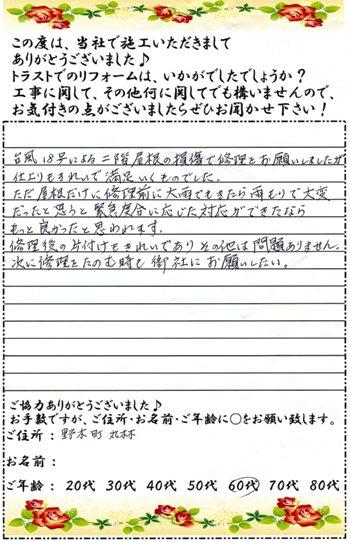 この度は、当社で施工いただきまして
ありがとうございました♪
トラストでのリフォームは、いかがでしたでしょうか？
工事に関して、その他何に関してでも構いませんので、
お気付きの点がございましたらぜひお聞かせ下さい！
台風18号による二階屋根の損傷で修理をお願いしましたが
仕上りもきれいで満足いくものでした。
ただ屋根だけに修理前に大雨でもきたら雨もりで大変
だったと思うと緊急度合に応じた対応ができたなら
もっと良かったと思われます。
修理後の片付けもきれいであり その他は問題ありません。
次に修理をたのむ時も御社にお願いしたい。
ご協力ありがとうございました♪
お手数ですが、ご住所・お名前・ご年齢に○をお願い致します。
ご住所： 野木町 丸林
お名前：
ご年齢： 20代 30代 40代 50代 60代 70代 80代